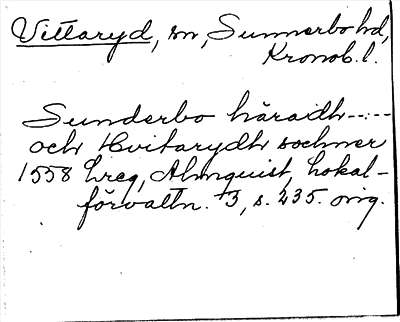 Vittaryd, sn, Sunnerbo hd,
Kronob. l.
Sunderbo häradh-----
och Hvitarydh sochner
1558 Lreg, Almquist, Lokal-
förvaltn. 3, s. 235. orig.